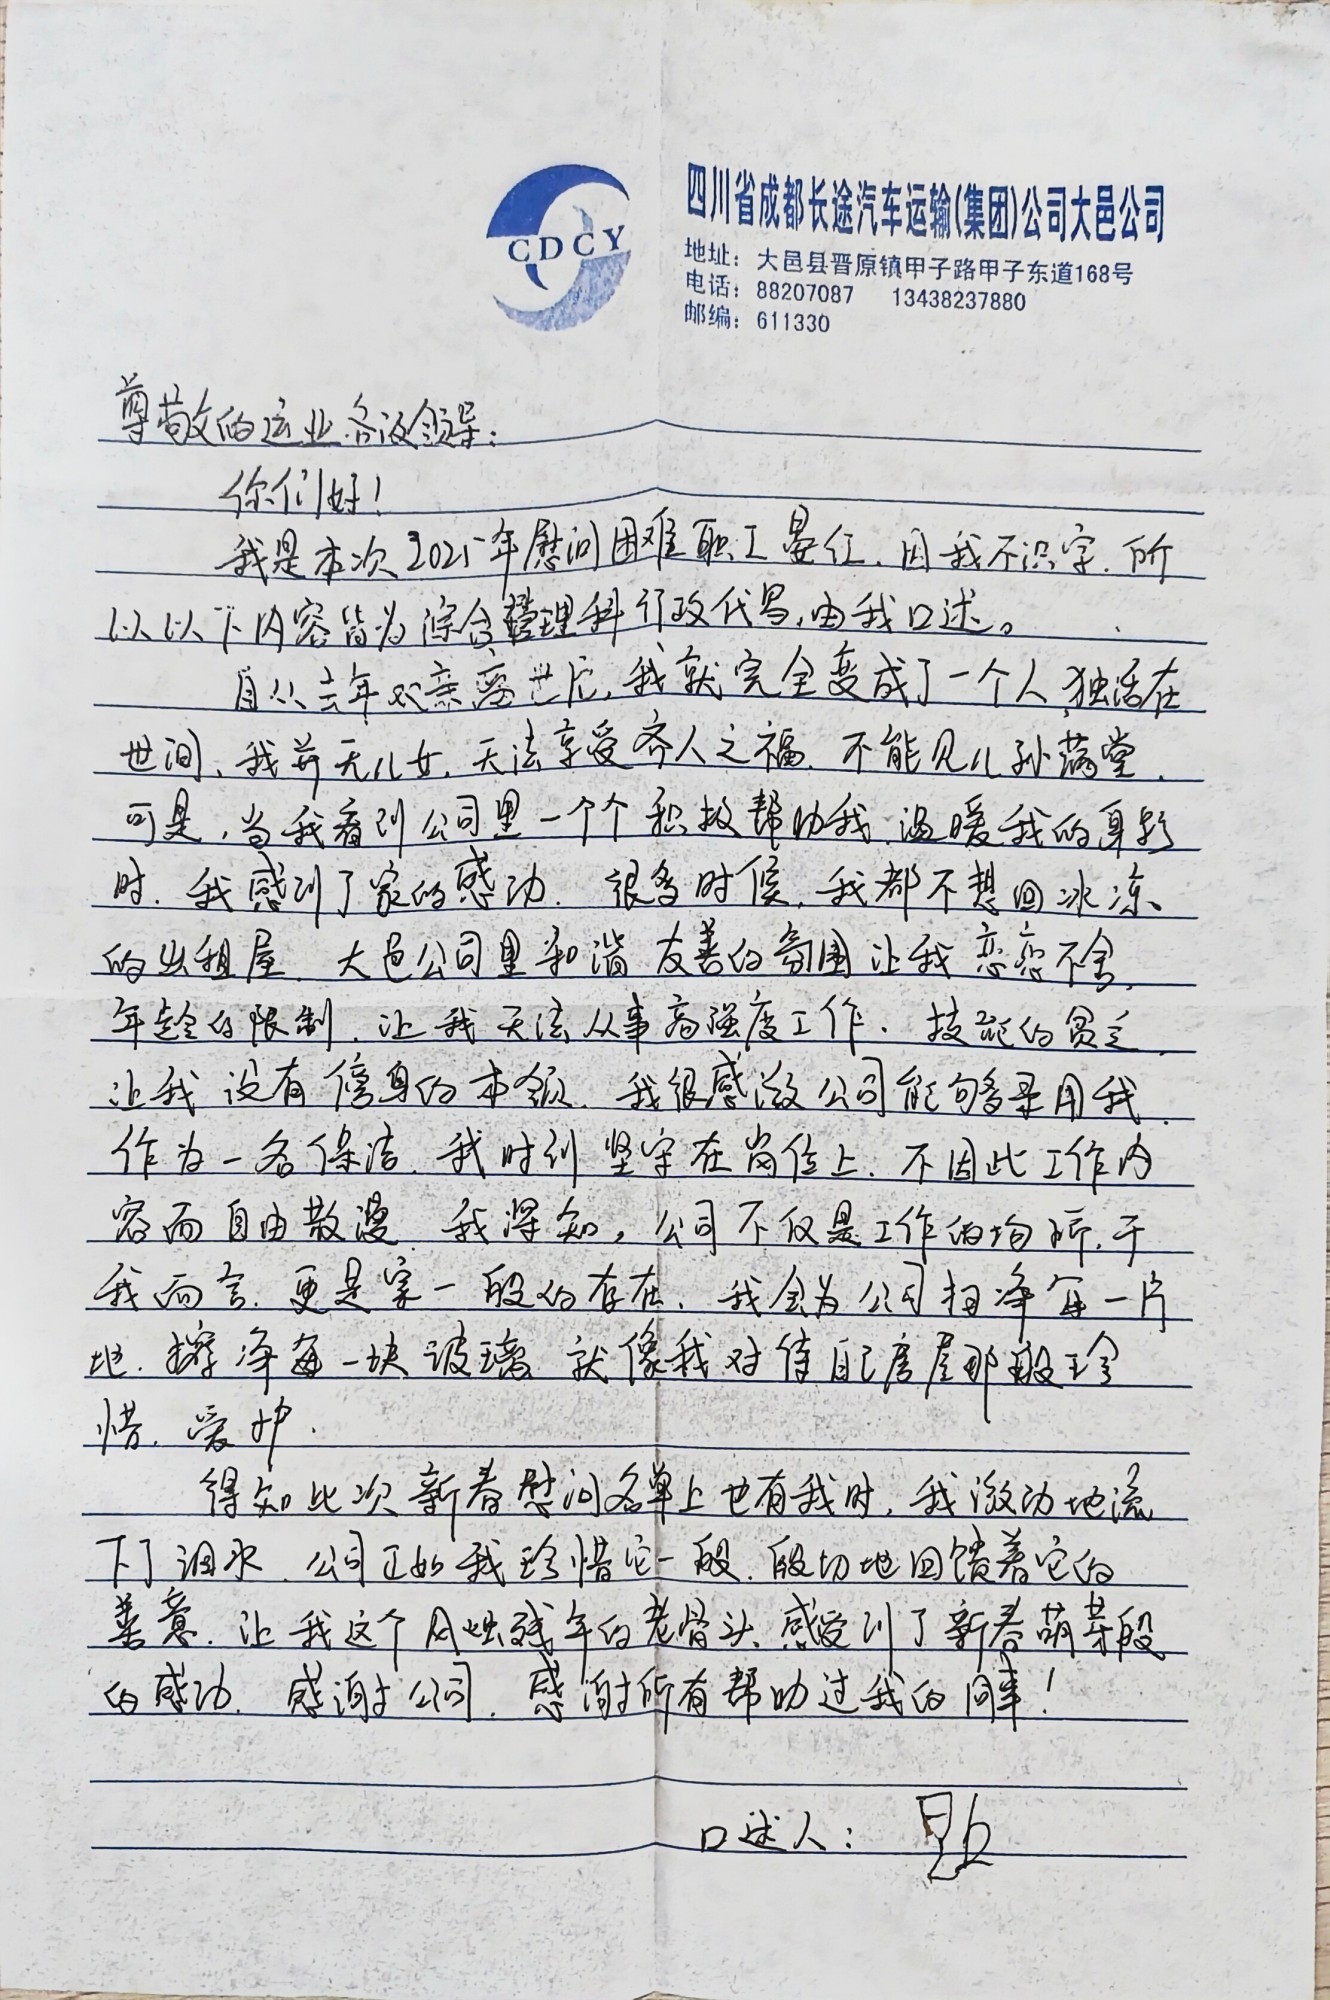 CDCY
四川省成都长途汽车运输(集团)公司大邑公司
地址：大邑县晋原镇甲子路甲子东道168号
电话：88207087 13438237880
邮编：611330
尊敬的运业各级领导：
你们好！
我是本次2025年慰问困难职工晏红，因我不识字，所
以以下内容皆为综合管理科行政代写，由我口述。
自从去年双亲离世后，我就完全变成了一个人独活在
世间，我并无儿女，无法享受齐人之福，不能见儿孙满堂，
可是，当我看到公司里一个个积极帮助我、温暖我的身影
时，我感到了家的感动。很多时候，我都不想回冰冻
的出租屋，大邑公司里和谐友善的氛围让我恋恋不舍，
年龄的限制，让我无法从事高强度工作，技能的贫乏，
让我没有傍身的本领，我很感激公司能够录用我，
作为一名保洁，我时刻坚守在岗位上，不因此工作内
容而自由散漫，我深知，公司不仅是工作的场所，于
我而言，更是家一般的存在，我会为公司扫净每一片
地，擦净每一块玻璃，就像我对待自己房屋那般珍
惜，爱护。
得知此次新春慰问名单上也有我时，我激动地流
下了泪水，公司正如我珍惜它一般，殷切地回馈着它的
善意，让我这个风烛残年的老骨头，感受到了新春萌芽般
的感动，感谢公司，感谢所有帮助过我的同事！
口述人：